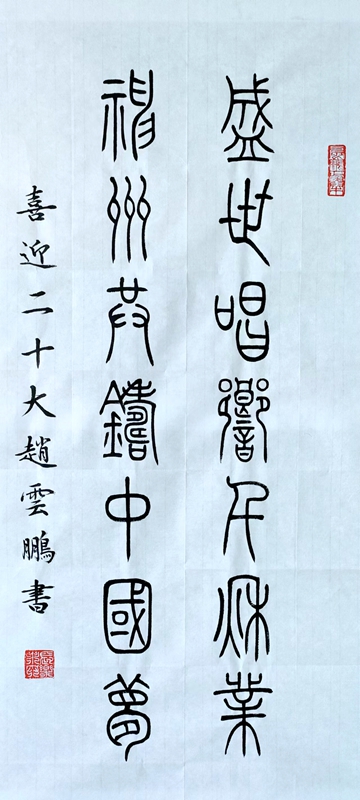 盛世唱響千秋業
神州共鑄中國夢
喜迎二十大趙雲鵬書